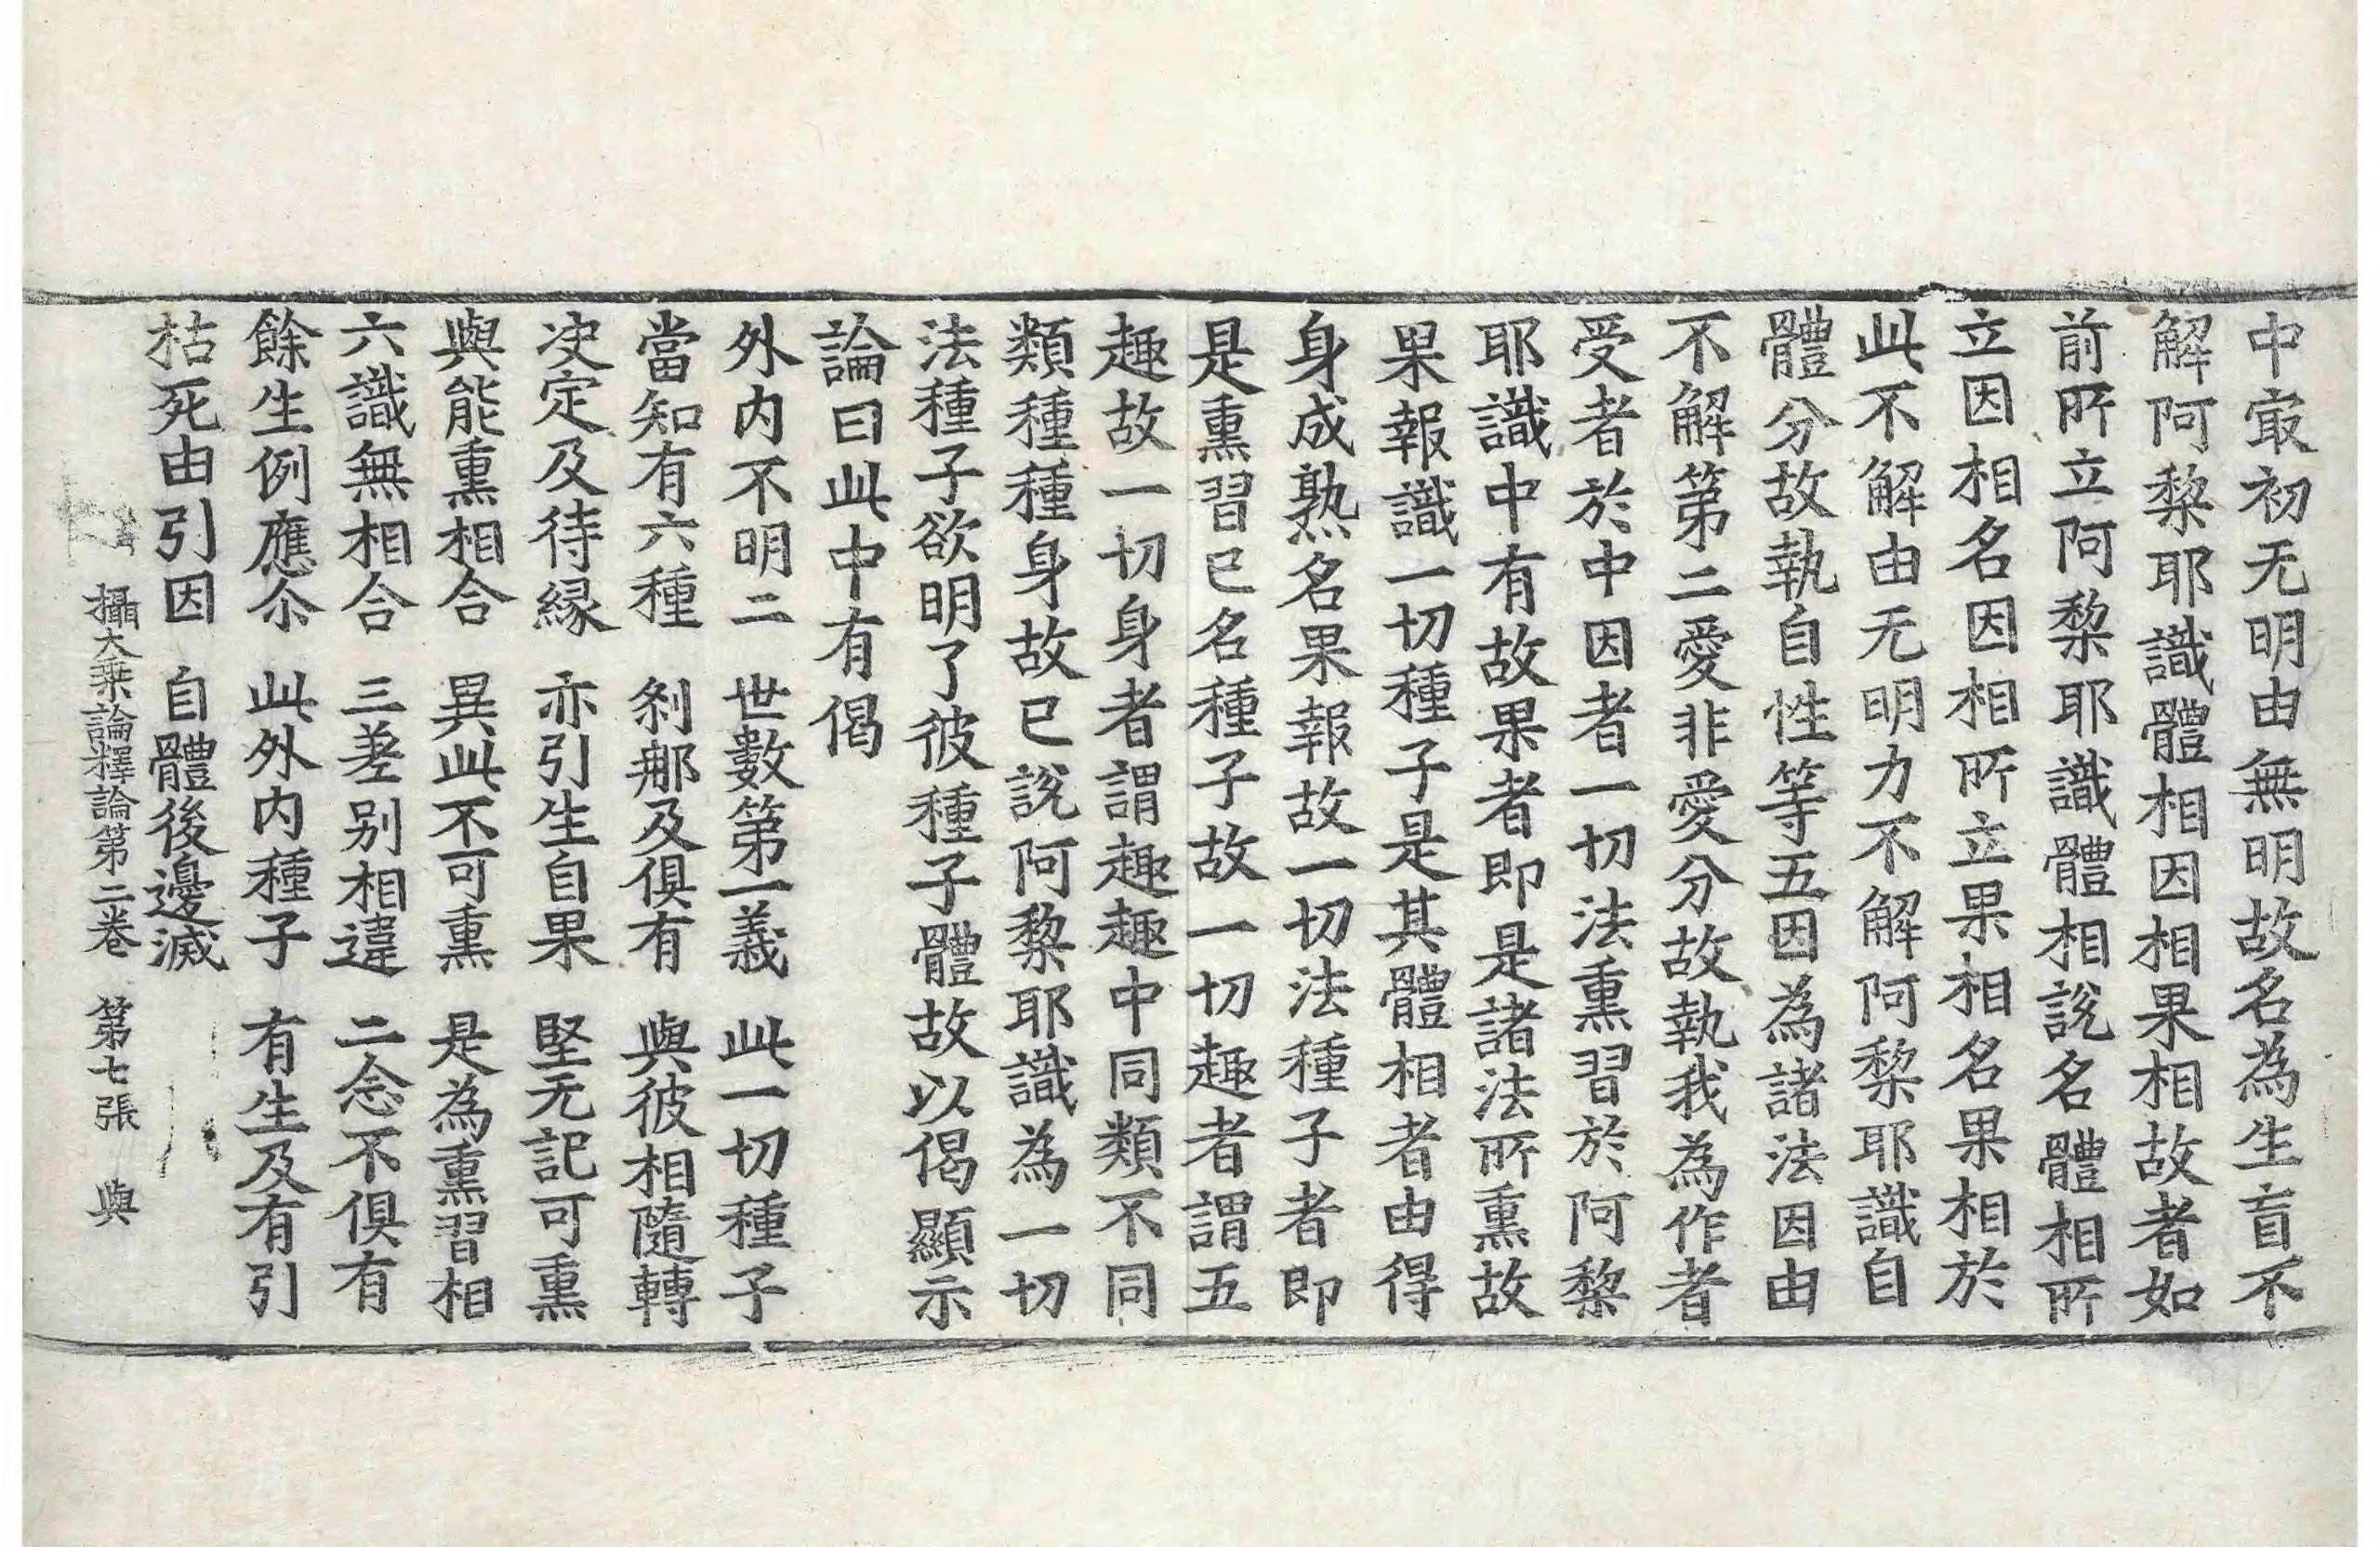 中㝡初无明由無明故名為生盲不
解阿黎耶識體相因相果相故者如
前所立阿黎耶識體相說名體相所
立因相名因相所立果相名果相於
此不解由无明力不解阿黎耶識自
體分故執自性等五因為諸法因由
不解第二愛非愛分故執我為作者
受者於中因者一切法熏習於阿黎
耶識中有故果者即是諸法所熏故
果報識一切種子是其體相者由得
身成熟名果報故一切法種子者即
是熏習已名種子故一切趣者謂五
趣故一切身者謂趣趣中同類不同
類種種身故已說阿黎耶識為一切
法種子欲明了彼種子體故以偈顯示
論曰此中有偈
外内不明二　世數第一義　此一切種子
當知有六種　剎那及俱有　與彼相隨轉
决定及待緣　亦引生自果　堅无記可熏
與能熏相合　異此不可熏　是為熏習相
六識無相合　三差别相違　二念不俱有
餘生例應尒　此外内種子　有生及有引
枯死由引因　自體後邊滅
攝大乘論釋論第二卷　第七張　與